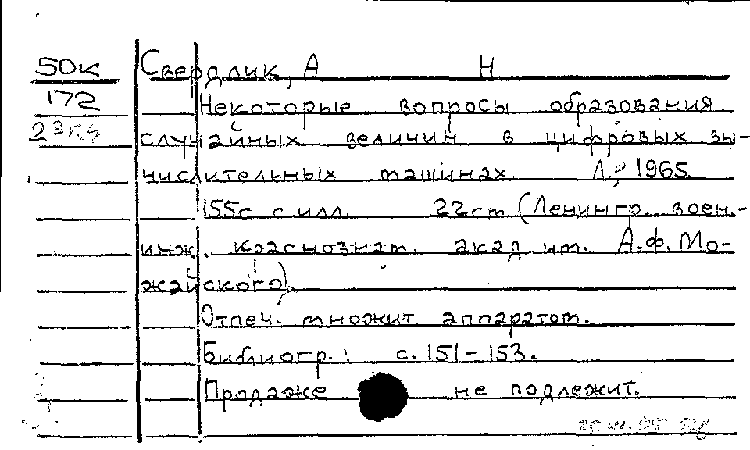 50к Свердлик, А Н
172 Некоторые вопросы образования
случайных величин в цифровых вы-
числительных машинах. Л., 1965.
155с с илл. 22ст (Ленингр. воен.-
инж. краснознам. акад им. А.Ф. Мо-
жайского).
Отпеч. множит аппаратом.
Библиогр.: с. 151-153.
Продаже не подлежит.